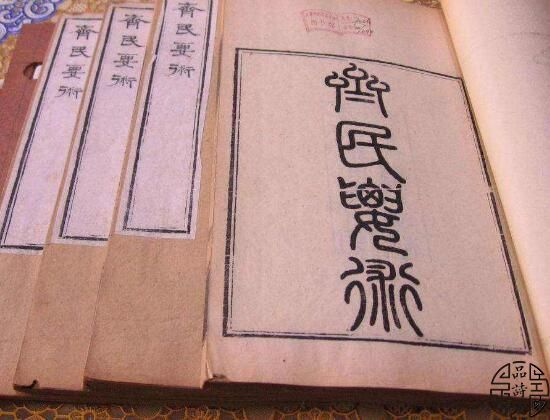 齊民要術
齊民要術
齊民要術
齊民要術
品詩